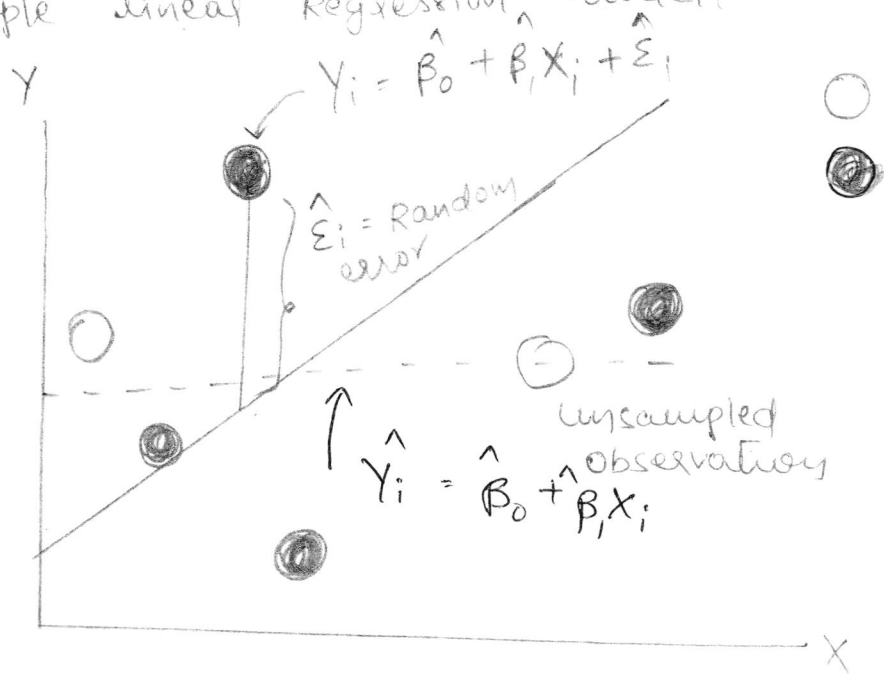 ple linear Regression
Y
Yi = β̂0 + β̂1Xi + ε̂i
ε̂i = Random
error
unsampled
observation
Ŷi = β̂0 + β̂1Xi
X